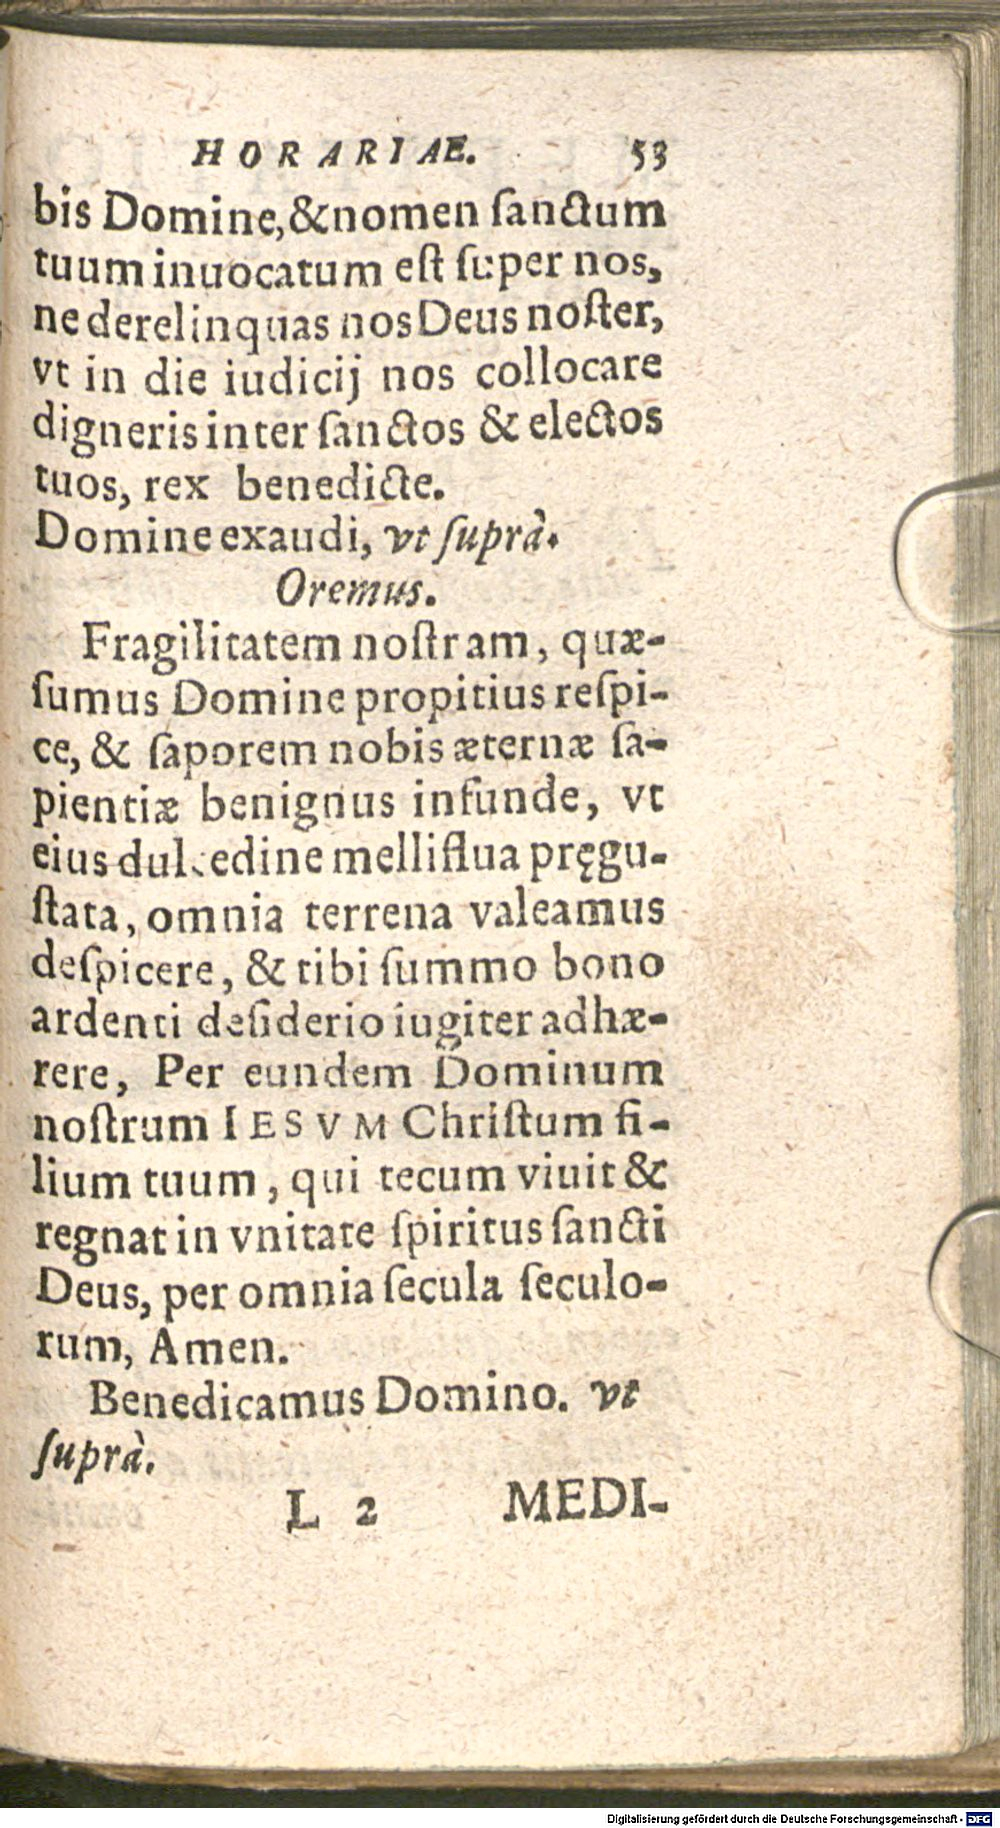 HORARIAE. 53
bis Domine, & nomen ſanctum
tuum inuocatum eſt ſuper nos,
ne derelinquas nos Deus noſter,
vt in die iudicij nos collocare
digneris inter ſanctos & electos
tuos, rex benedicte.
Domine exaudi, vt ſuprà.
Oremus.
Fragilitatem noſtram, quæ-
ſumus Domine propitius reſpi-
ce, & ſaporem nobis æternæ ſa-
pientiæ benignus infunde, vt
eius dulcedine melliflua pręgu-
ſtata, omnia terrena valeamus
deſpicere, & tibi ſummo bono
ardenti deſiderio iugiter adhæ-
rere, Per eundem Dominum
noſtrum IESVM Chriſtum fi-
lium tuum, qui tecum viuit &
regnat in vnitate ſpiritus ſancti
Deus, per omnia ſecula ſeculo-
rum, Amen.
Benedicamus Domino. vt
ſuprà.
L 2 MEDI-
Digitalisierung gefördert durch die Deutsche Forschungsgemeinschaft - DFG